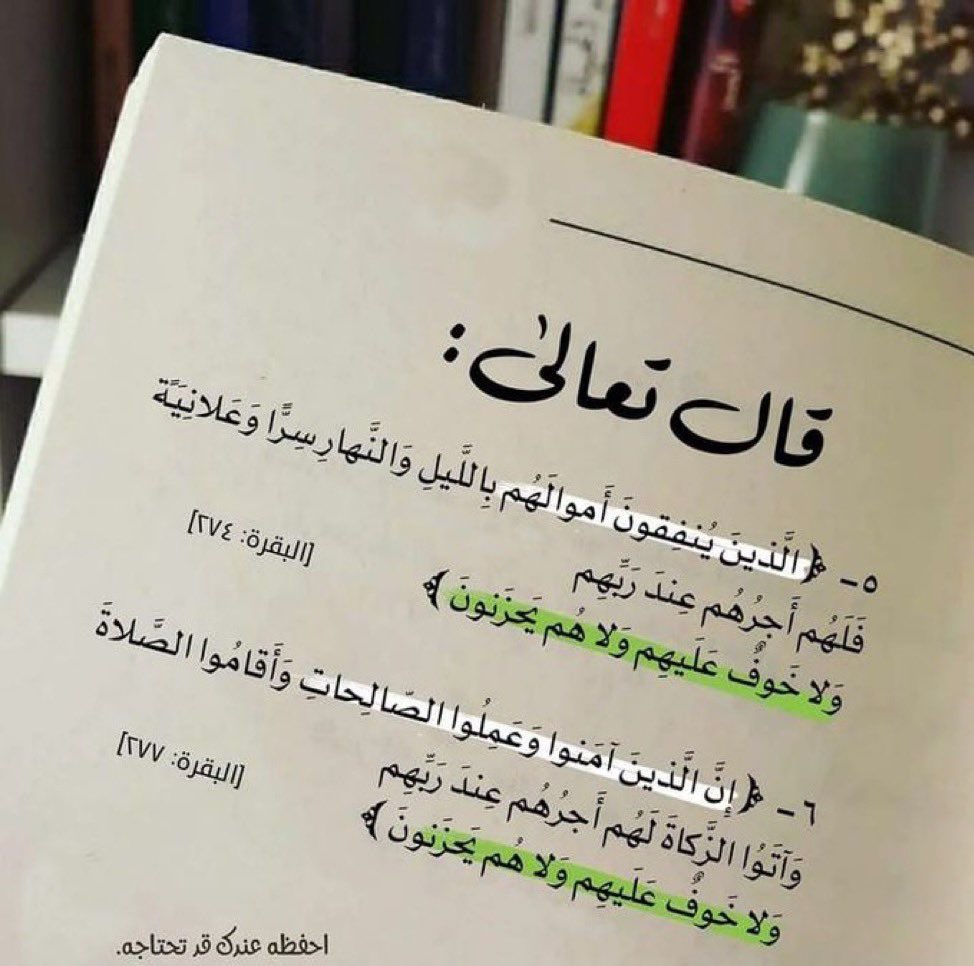 قال تعالىٰ:
٥ - ﴿ الَّذينَ يُنفِقونَ أَموالَهُم بِاللَّيلِ وَالنَّهارِ سِرًّا وَعَلانِيَةً
فَلَهُم أَجرُهُم عِندَ رَبِّهِم
[البقرة: ٢٧٤]
وَلا خَوفٌ عَلَيهِم وَلا هُم يَحزَنونَ ﴾
٦ - ﴿ إِنَّ الَّذينَ آمَنوا وَعَمِلُوا الصّالِحاتِ وَأَقامُوا الصَّلاةَ
وَآتَوُا الزَّكاةَ لَهُم أَجرُهُم عِندَ رَبِّهِم
[البقرة: ٢٧٧]
وَلا خَوفٌ عَلَيهِم وَلا هُم يَحزَنونَ ﴾
احفظه عندك قد تحتاجه.